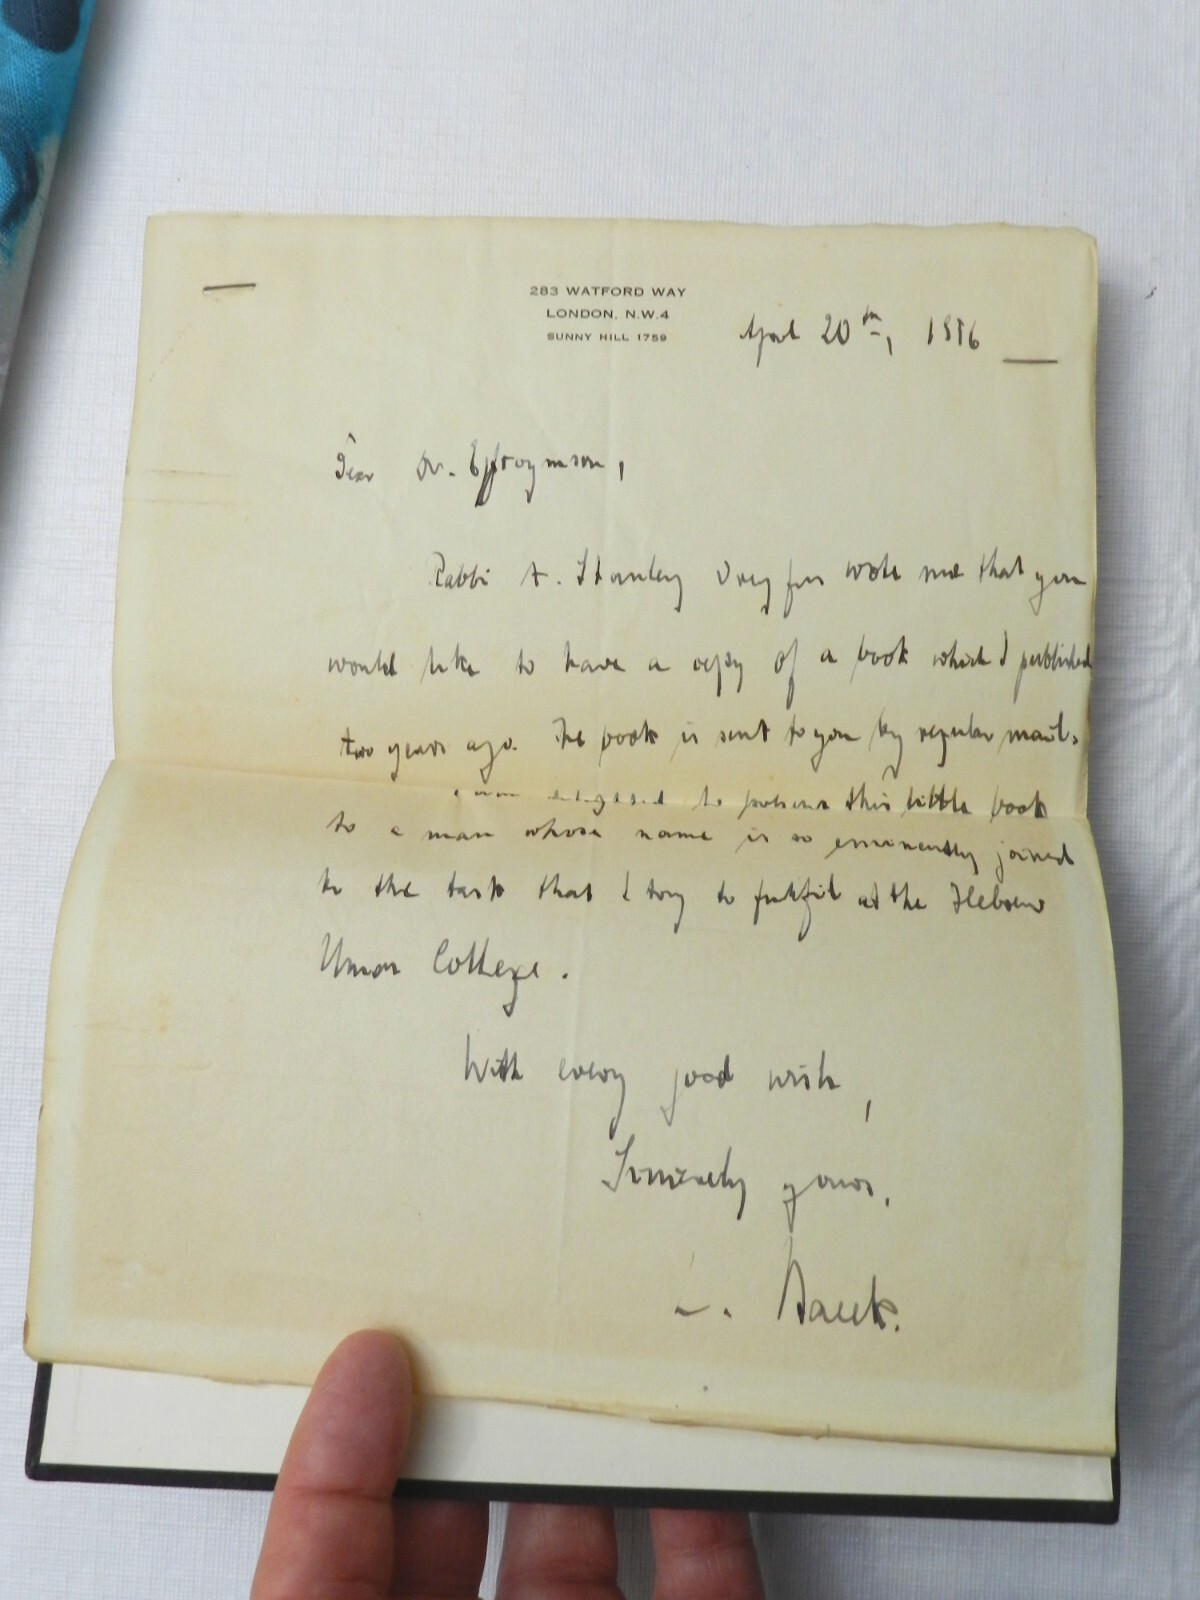 283 WATFORD WAY
LONDON, N.W.4
SUNNY HILL 1759
April 20th, 1956
Dear Dr. Effroymson,
Rabbi A. Stanley Dreyfus wrote me that you
would like to have a copy of a book which I published
two years ago. The book is sent to you by regular mail.
to present this little book
to a man whose name is so eminently joined
to the task that I try to fulfil at the Hebrew
Union College.
With every good wish,
Sincerely yours,
Baeck.